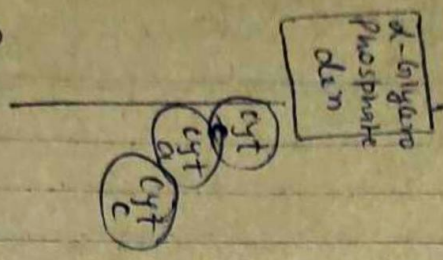 α-Glycero
Phosphate
dezn
Cyt
Cyt
a
Cyt
c